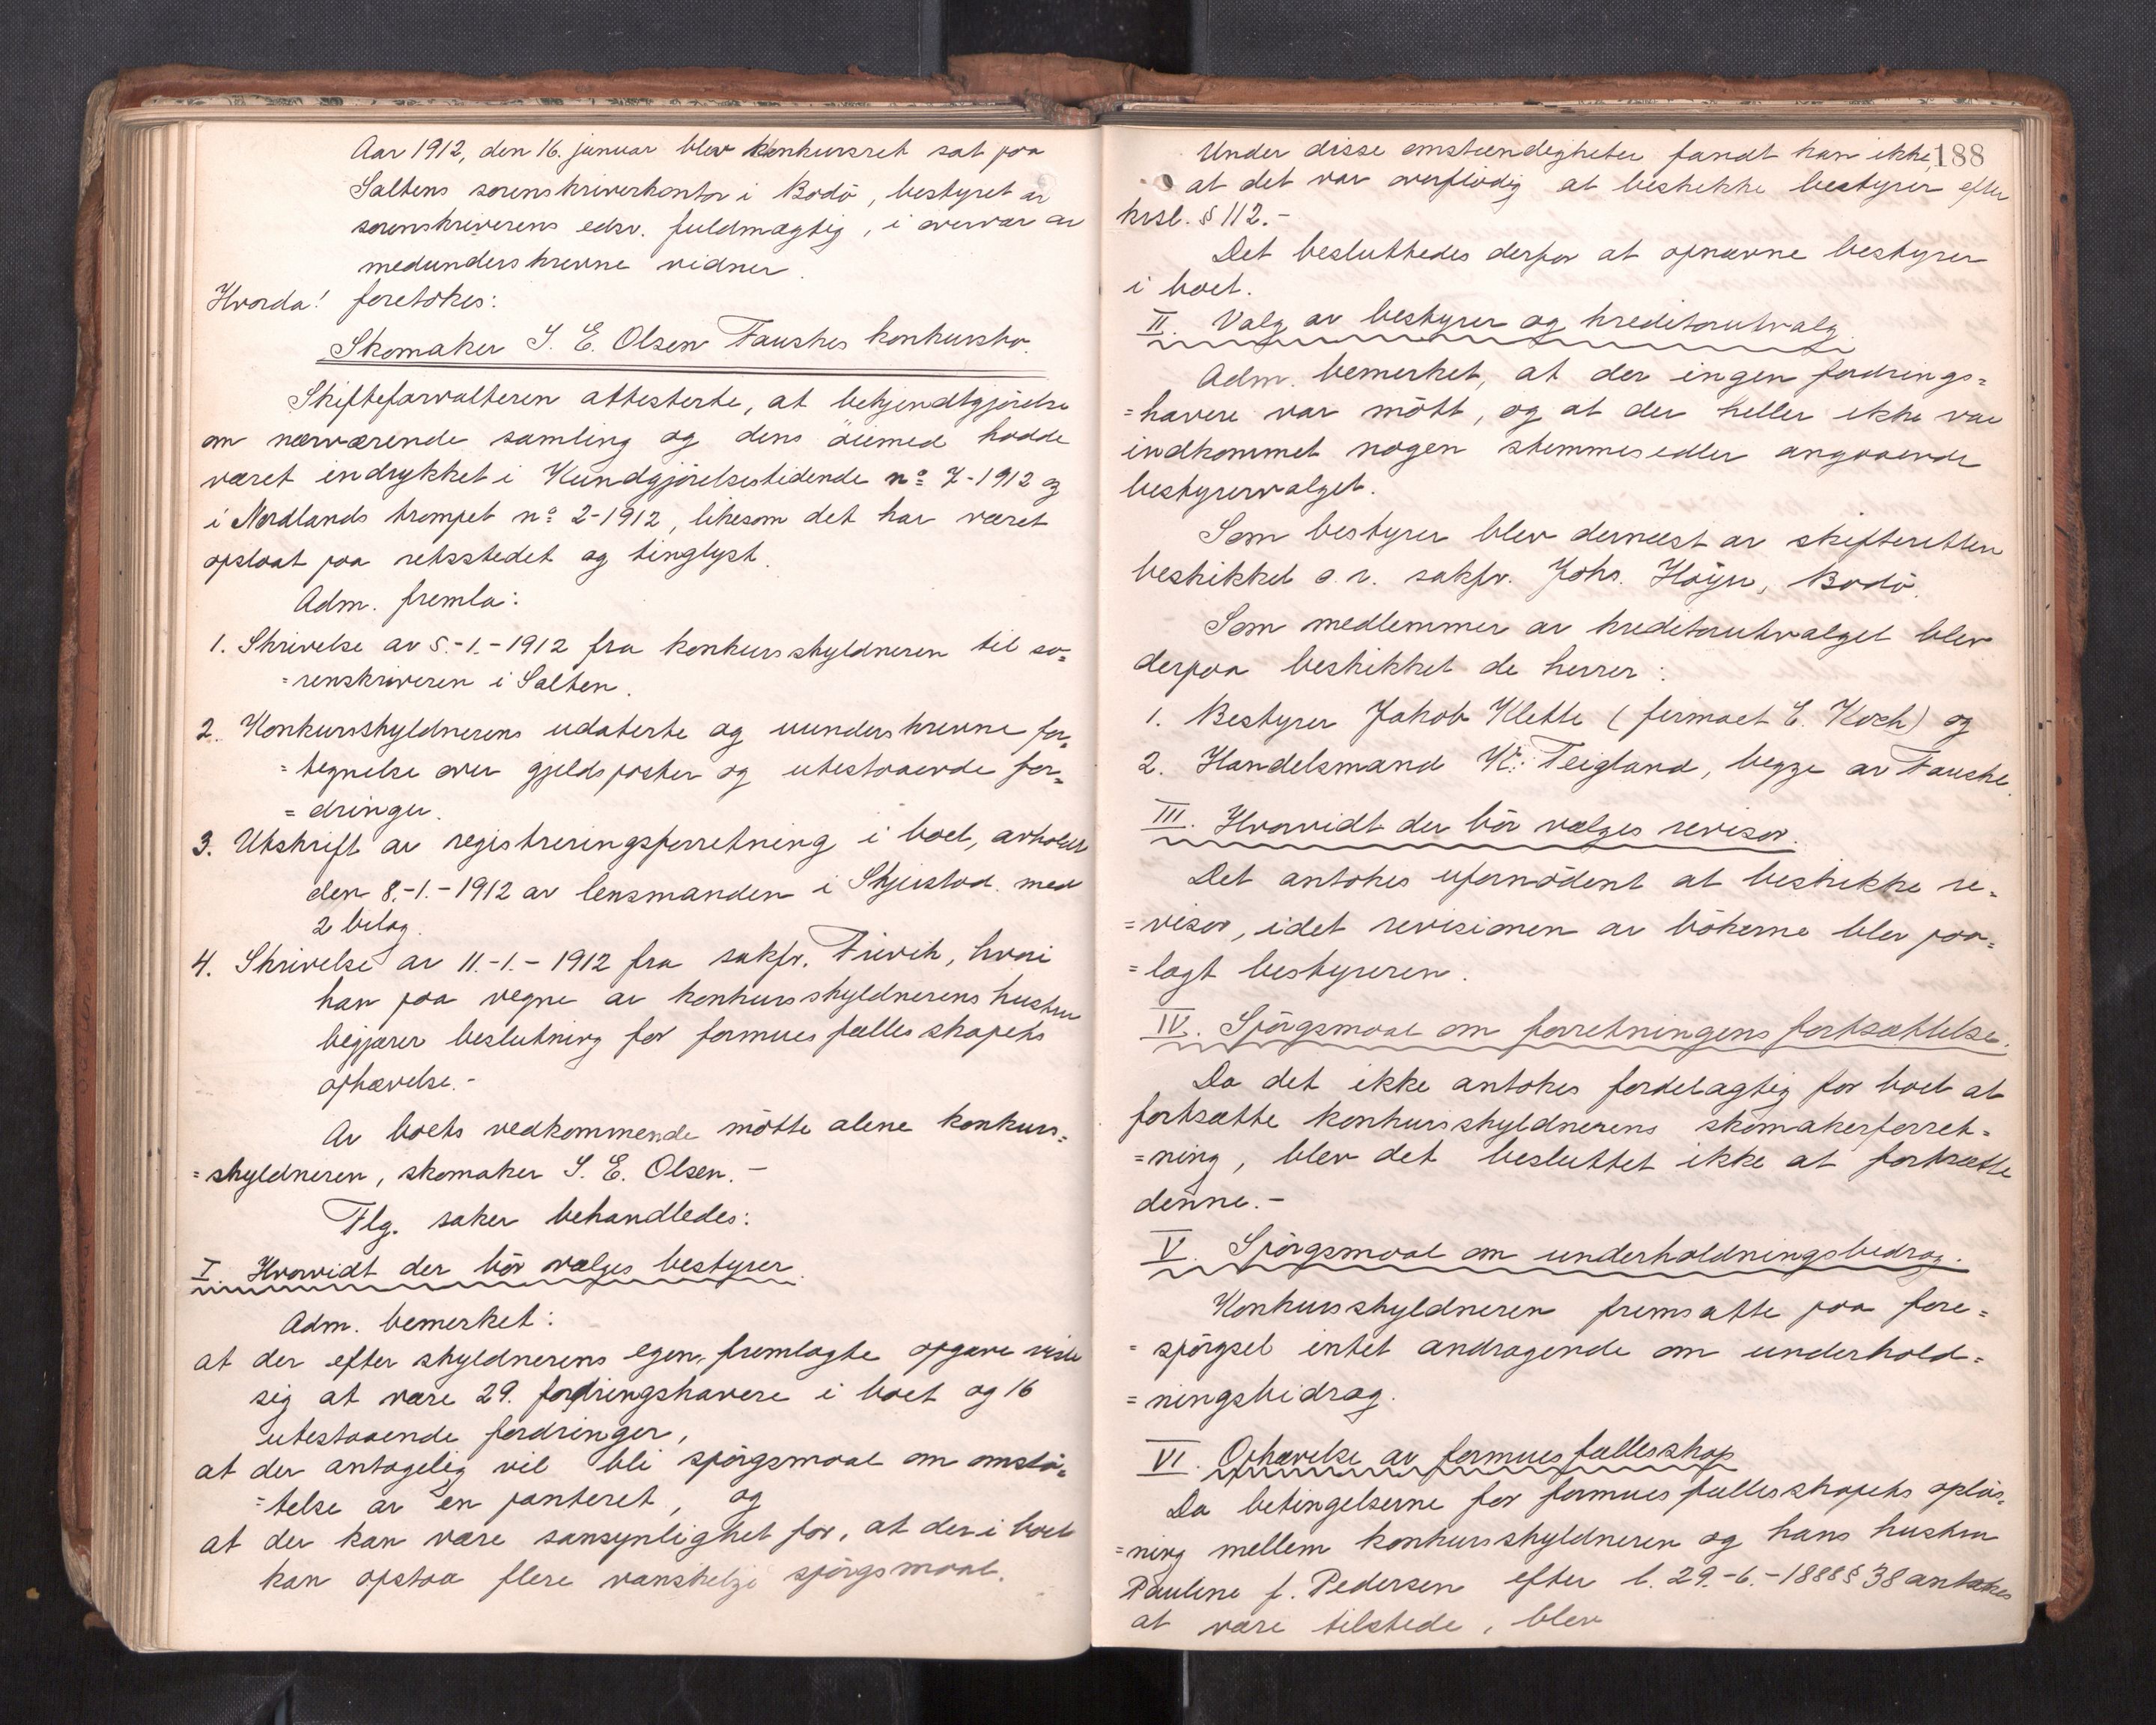 Aar 1912, den 16. januar blev konkursret sat paa
Saltens sorenskriverkontor i Bodö, bestyret av
sorenskriverens edsv. fuldmægtig, i overvær av
medunderskrevne vidner.
Hvorda! foretokes:
Skomaker S. E. Olsen Fauskes konkursbo.
Skifteforvalteren attesterte, at bekjendtgjörelse
om nærværende samling og dens öiemed hadde
været indrykket i Kundgjörelsestidende no 7-1912 og
i Nordlands trompet no 2-1912, likesom det har været
opslaat paa retsstedet og tinglyst.
Adm. fremla:
1. Skrivelse av 5.-1.-1912 fra konkursskyldneren til so=
=renskriveren i Salten.
2. Konkursskyldnerens udaterte og uunderskrevne for=
=tegnelse over gjeldsposter og utestaaende for=
=dringer.
3. Utskrift av registreringsforretning i boet, avholdt
den 8.-1.-1912 av lensmanden i Skjerstad med
2 bilag.
4. Skrivelse av 11.-1.-1912 fra sakfr. hvori
han paa vegne av konkursskyldnerens hustru
begjærer beslutning for formuesfællesskapets
ophævelse.-
Av boets vedkommende mötte alene konkurs=
=skyldneren, skomaker S. E. Olsen.-
Flg. saker behandledes:
I. Hvorvidt der bör vælges bestyrer.
Adm. bemerket:
at der efter skyldnerens egen, fremlagte opgave viste
sig at være 29. fordringshavere i boet og 16
utestaaende fordringer,
at der antagelig vil bli spörgsmaal om omstö=
=telse av en panteret, og
at der kan være sansynlighet for, at der i boet
kan opstaa flere vanskelige spörgsmaal.
188
Under disse omstændigheter fandt han ikke,
at det var overflödig at beskikke bestyrer efter
krsl. § 112.-
Det besluttedes derfor at opnævne bestyrer
i boet.
II. Valg av bestyrer og kreditorutvalg.
Adm. bemerket, at der ingen fordrings=
=havere var mött, og at der heller ikke var
indkommet nogen stemmesedler angaaende
bestyrervalget.
Som bestyrer blev dernæst av skifteretten
beskikket o.r. sakfr. Johs. Höyer, Bodö.
Som medlemmer av kreditorutvalget blev
derpaa beskikket de herrer:
1. Bestyrer Jakob Klette (firmaet E. Koch) og
2. Handelsmand Kr. Teigland, begge av Fauske.
III. Hvorvidt der bör vælges revisor.
Det antokes ufornödent at beskikke re=
=visor, idet revisionen av bökerne blev paa=
=lagt bestyreren.
IV. Spörgsmaal om forretningens fortsættelse.
Da det ikke antokes fordelagtig for boet at
fortsætte konkursskyldnerens skomakerforret=
=ning, blev det besluttet ikke at fortsætte
denne.-
V. Spörgsmaal om underholdningsbidrag.
Konkursskyldneren fremsatte paa fore=
=spörgsel intet andragende om underhold=
=ningsbidrag.
VI. Ophævelse av formuesfællesskap
Da betingelserne for formuesfællesskapets oplös=
=ning mellem konkursskyldneren og hans hustru
Pauline f. Pedersen efter l. 29.-6.-1888 § 38 antokes
at være tilstede, blev